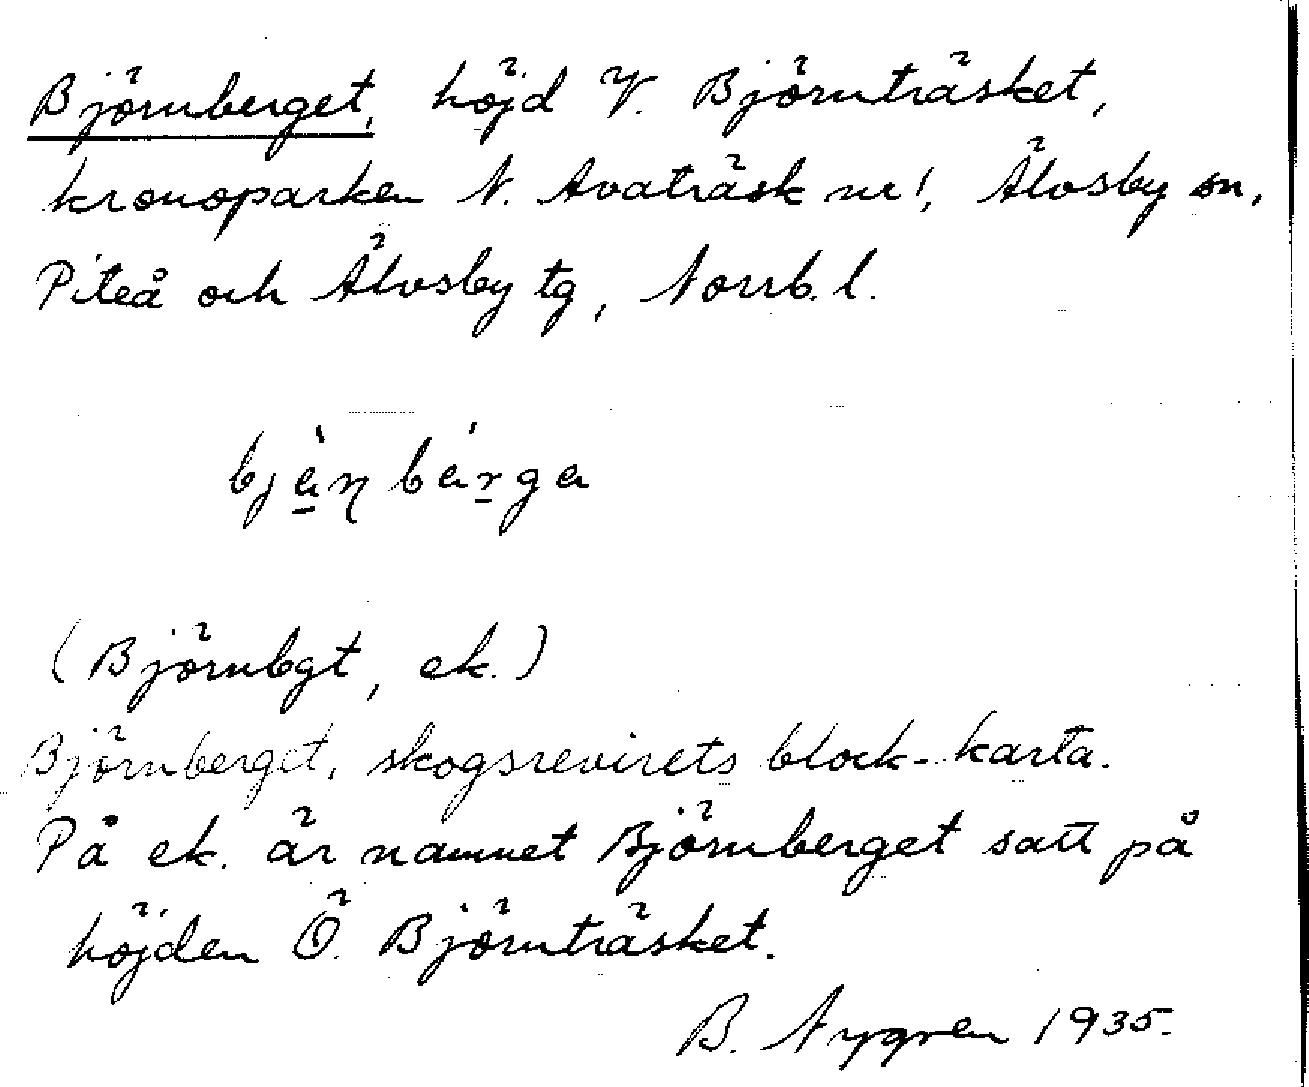 Björnberget, höjd V. Björnträsket,
kronoparken N. Avaträsk nr 1, Älvsby sn,
Piteå och Älvsby tg, Norrb. l.
bjà̱ɳ bárga
(Björnbgt, ek.)
Björnberget, skogsrevirets block-karta.
På ek. är namnet Björnberget satt på
höjden Ö. Björnträsket.
B. Nygren 1935.